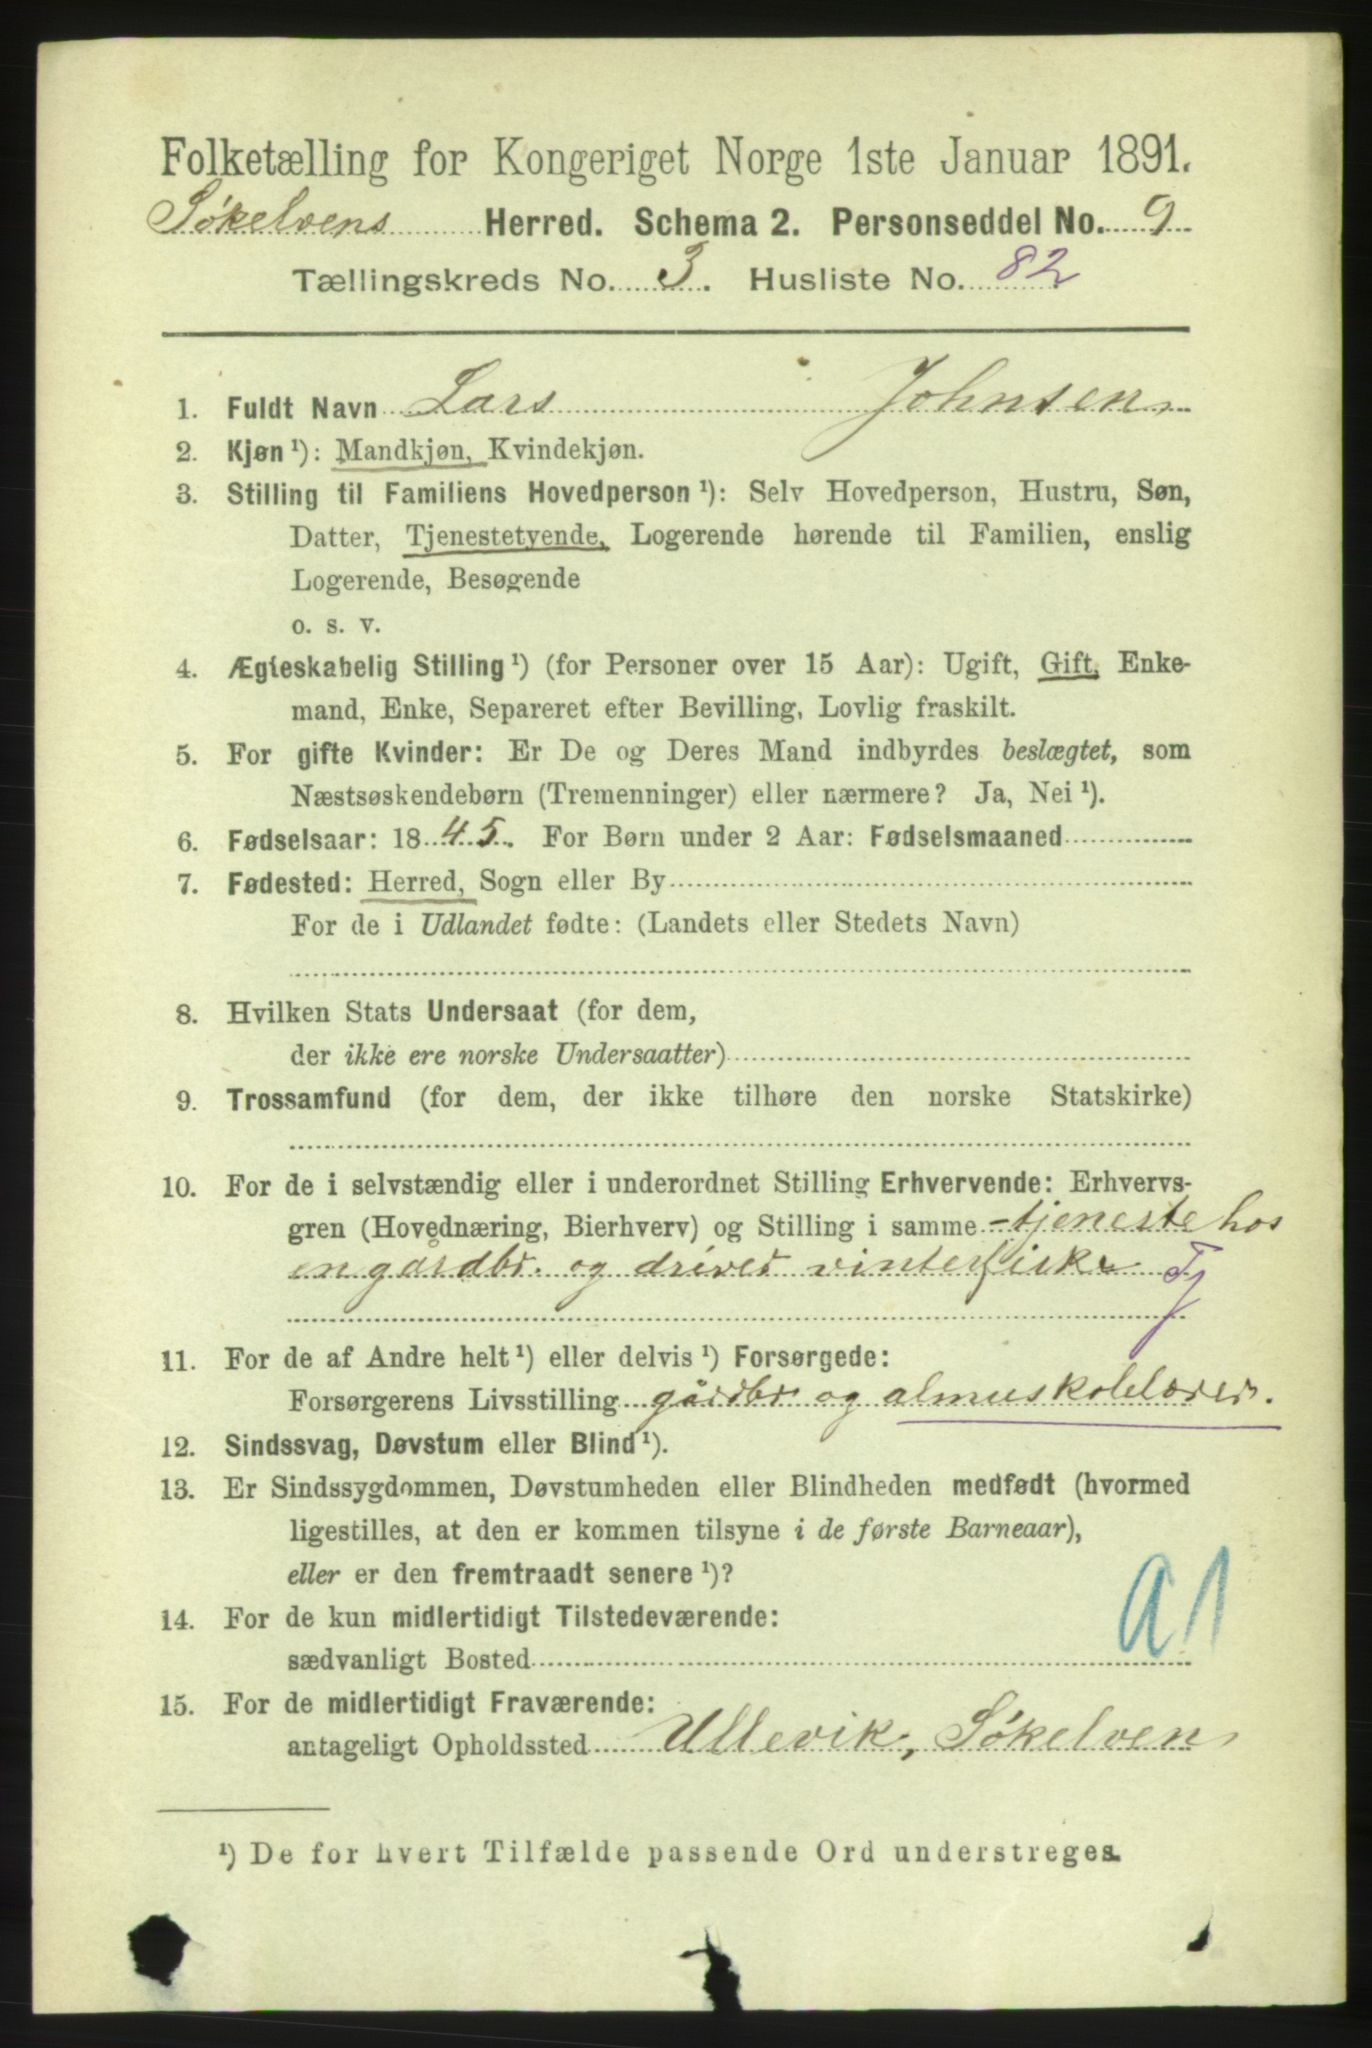 Folketælling for Kongeriget Norge 1ste Januar 1891.
Søkelvens Herred. Schema 2. Personseddel No. 9
Tællingskreds No. 3. Husliste No. 82
1. Fuldt Navn Lars Johnsen
2. Kjøn ¹): Mandkjøn, Kvindekjøn.
3. Stilling til Familiens Hovedperson ¹): Selv Hovedperson, Hustru, Søn,
Datter, Tjenestetyende, Logerende hørende til Familien, enslig
Logerende, Besøgende
o. s. v.
4. Ægteskabelig Stilling ¹) (for Personer over 15 Aar): Ugift, Gift, Enke-
mand, Enke, Separeret efter Bevilling, Lovlig fraskilt.
5. For gifte Kvinder: Er De og Deres Mand indbyrdes beslægtet, som
Næstsøskendebørn (Tremenninger) eller nærmere? Ja, Nei ¹).
6. Fødselsaar: 1845. For Børn under 2 Aar: Fødselsmaaned
7. Fødested: Herred, Sogn eller By
For de i Udlandet fødte: (Landets eller Stedets Navn)
8. Hvilken Stats Undersaat (for dem,
der ikke ere norske Undersaatter)
9. Trossamfund (for dem, der ikke tilhøre den norske Statskirke)
10. For de i selvstændig eller i underordnet Stilling Erhvervende: Erhvervs-
gren (Hovednæring, Bierhverv) og Stilling i samme - tjeneste hos
en gårdbr. og driver vinterfiske Tj
11. For de af Andre helt ¹) eller delvis ¹) Forsørgede:
Forsørgerens Livsstilling gårdbr og almuskolelærer.
12. Sindssvag, Døvstum eller Blind ¹).
13. Er Sindssygdommen, Døvstumheden eller Blindheden medfødt (hvormed
ligestilles, at den er kommen tilsyne i de første Barneaar),
eller er den fremtraadt senere ¹)?
a1
14. For de kun midlertidigt Tilstedeværende:
sædvanligt Bosted
15. For de midlertidigt Fraværende:
antageligt Opholdssted Ullevik, Søkelven
¹) De for hvert Tilfælde passende Ord understreges.